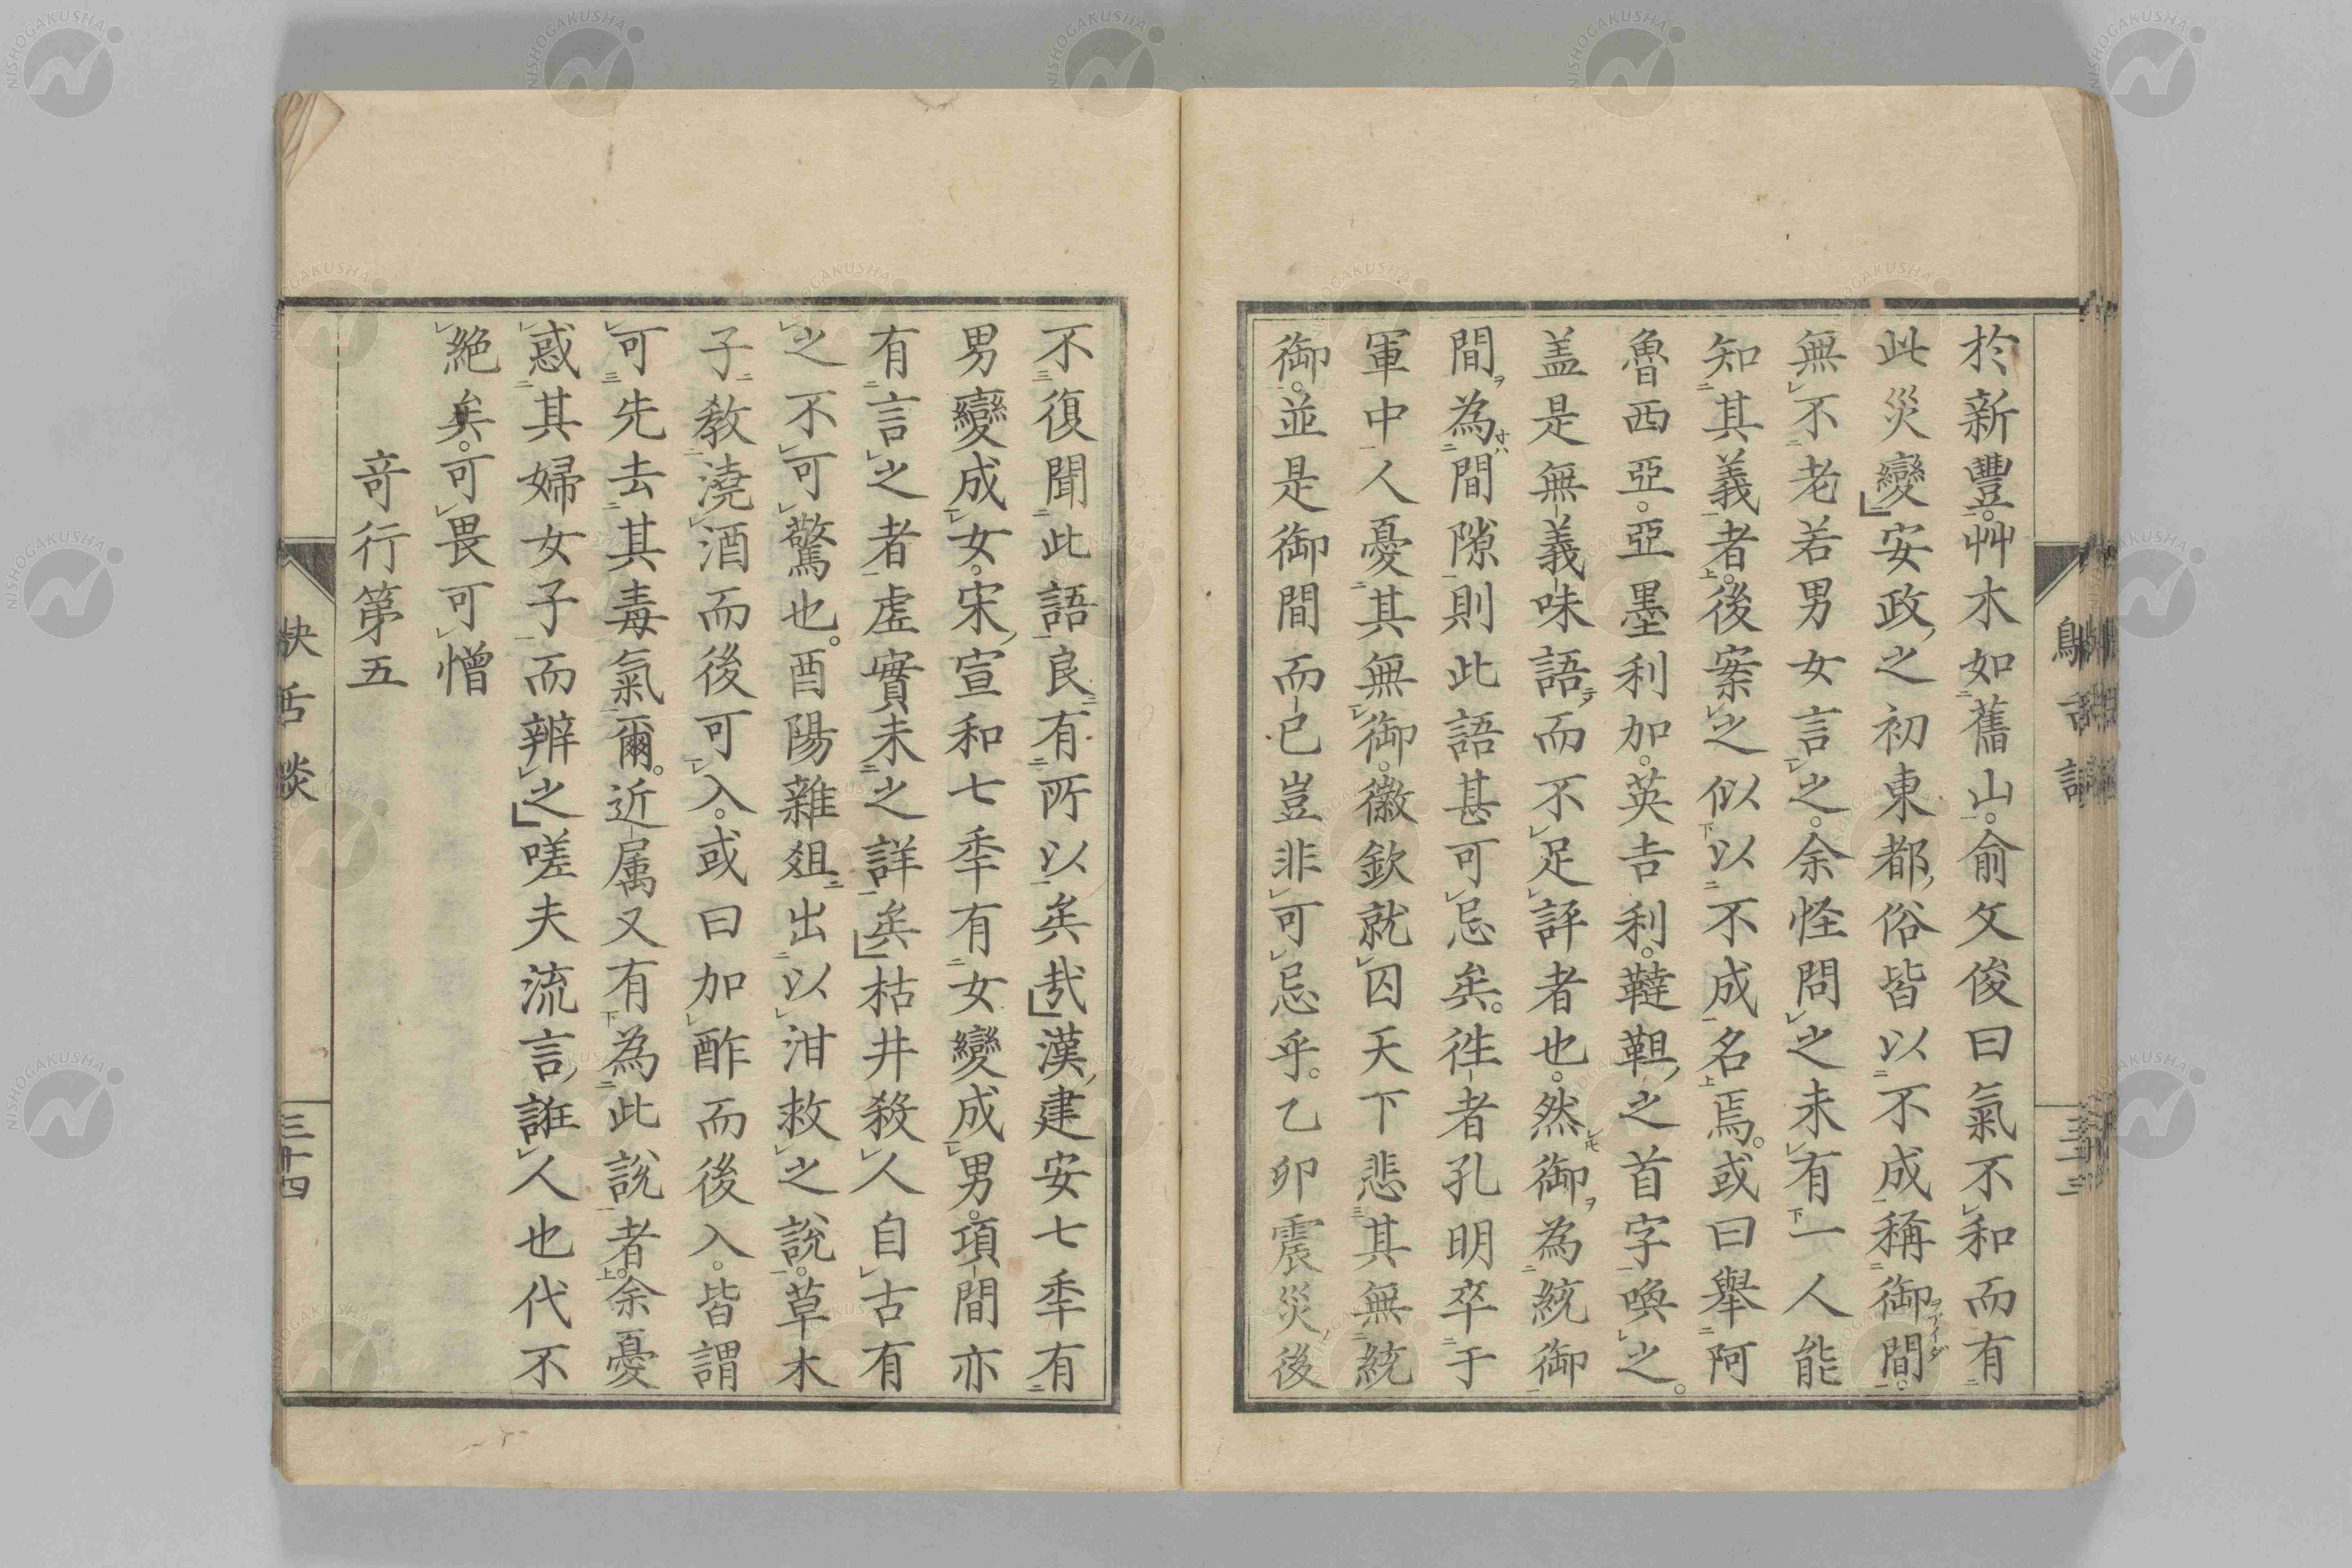 於新豐。艸木如舊山。俞文俊曰氣不和而有
此災變」安政之初東都俗皆以不成稱御間。
無不老若男女言之。余怪問之未有一人能
知其義者。後案之似以不成名焉。或曰舉阿
魯西亞。亞墨利加。英吉利。韃靼之首字喚之。
盖是無義味語而不足評者也。然御為統御
間為間隙則此語甚可忌矣。徃者孔明卒于
軍中人憂其無御。徽欽就囚天下悲其無統
御。並是御間而已豈非可忌乎。乙卯震災後
不復聞此語良有所以矣哉」漢建安七秊有
男變成女。宋宣和七秊有女變成男。項間亦
有言之者虛實未之詳矣」枯井殺人自古有
之不可驚也。酉陽雜俎出以泔救之說。草木
子教澆酒而後可入。或曰加酢而後入。皆謂
可先去其毒氣爾。近属又有為此說者。余憂
惑其婦女子而辨之」嗟夫流言誑人也代不
絕矣。可畏可憎
竒行第五
三十四
NISHOGAKUSHA